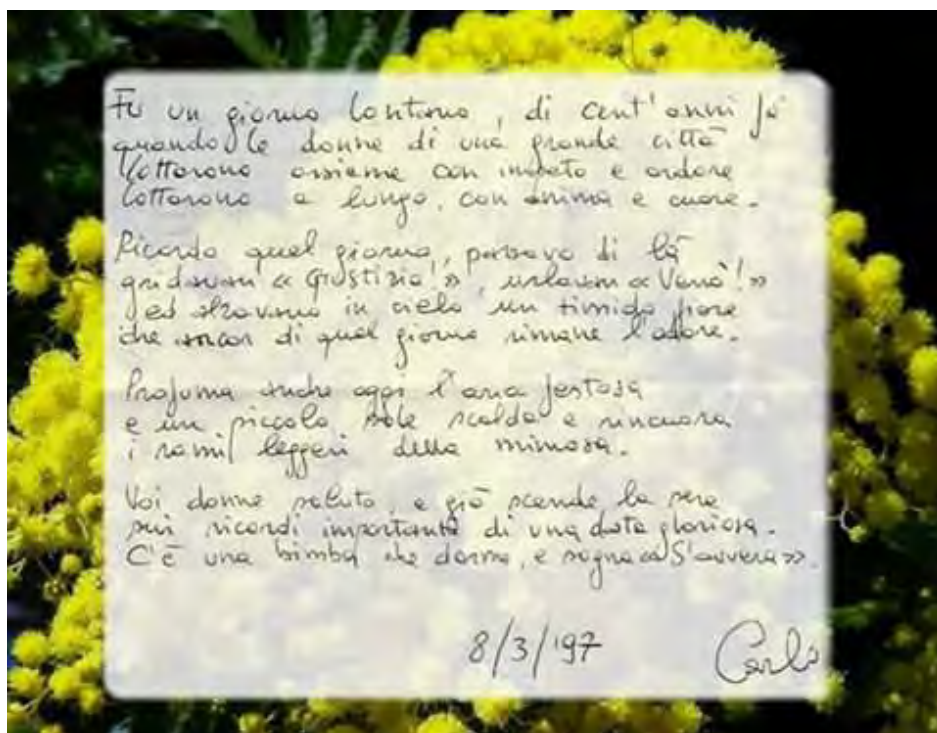 Fu un giorno lontano, di cent'anni fa
quando le donne di una grande città
lottarono assieme con impeto e ardore
lottarono a lungo, con anima e cuore.
Ricordo quel giorno, passavo di là
gridavan «Giustizia!», urlavan
ed alzavano in cielo un timido fiore
che ancor di quel giorno rimane l'odore.
Profuma anche oggi l'aria festosa
e un piccolo sole scalda e rincuora
i rami leggeri della mimosa.
Voi donne saluto, e già scende la sera
sui ricordi importanti di una data gloriosa.
C'è una bimba che dorme, e sogna «S'avvera».
8/3/'97
Carlo